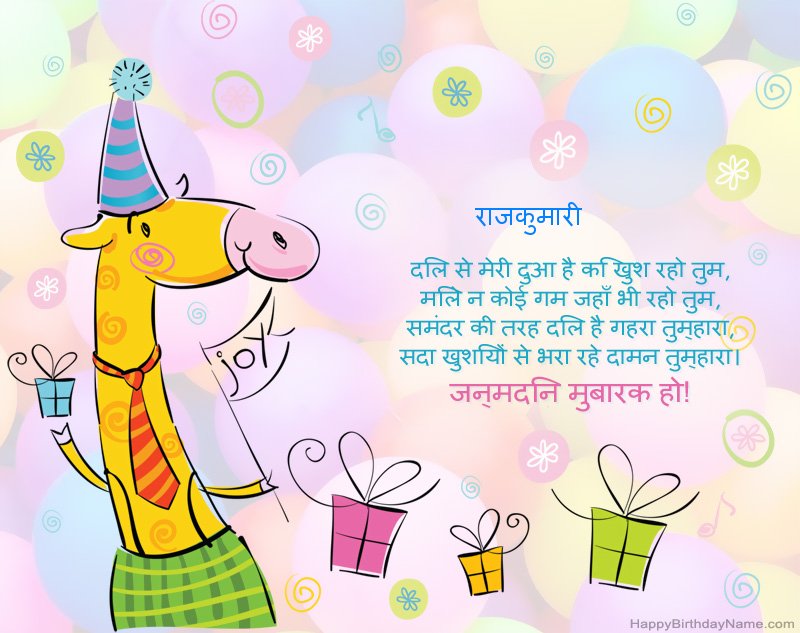 राजकुमारी
दलि से मेरी दुआ है कि खुश रहो तुम,
मलिे न कोई गम जहाँ भी रहो तुम,
समंदर की तरह दलि है गहरा तुम्हारा,
सदा खुशयिों से भरा रहे दामन तुम्हारा।
जन्मदनि मुबारक हो!
joy
HappyBirthdayName.com